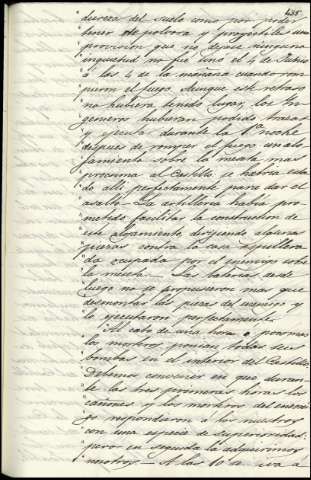 435
dureza del suelo como por poder
tener de polvora y proyectiles una
provision que no dejase ninguna
inquietud no fué sino el 4 de Julio
á las 4 de la mañana cuando rom-
pieron el fuego. Aunque este retraso
no hubiera tenido lugar, los In-
genieros hubieran podido trazar
y ejecutar durante la 1ª noche
despues de romper el fuego un alo-
jamiento sobre la meseta mas
proxima al Castillo, se habria esta-
do alli perfectamente para dar el
asalto. La artilleria habia pro-
metido facilitar la construccion de
este alojamiento dirigiendo algunas
piezas contra la casa aspillera-
da ocupada por el enemigo sobre
la meseta. Las baterias desde
luego no se propusieron mas que
desmontar las piezas del enemigo y
lo ejecutaron perfectamente.
Al cabo de una hora ó poco mas
los morteros ponian todas sus
bombas en el interior del Castillo.
Debemos convenir en que duran-
te las tres primeras horas los
cañones y los morteros del enemi-
go respondieron á los nuestros
con una especie de superioridad,
pero en seguida la adquirimos
nosotros. A las 10 de